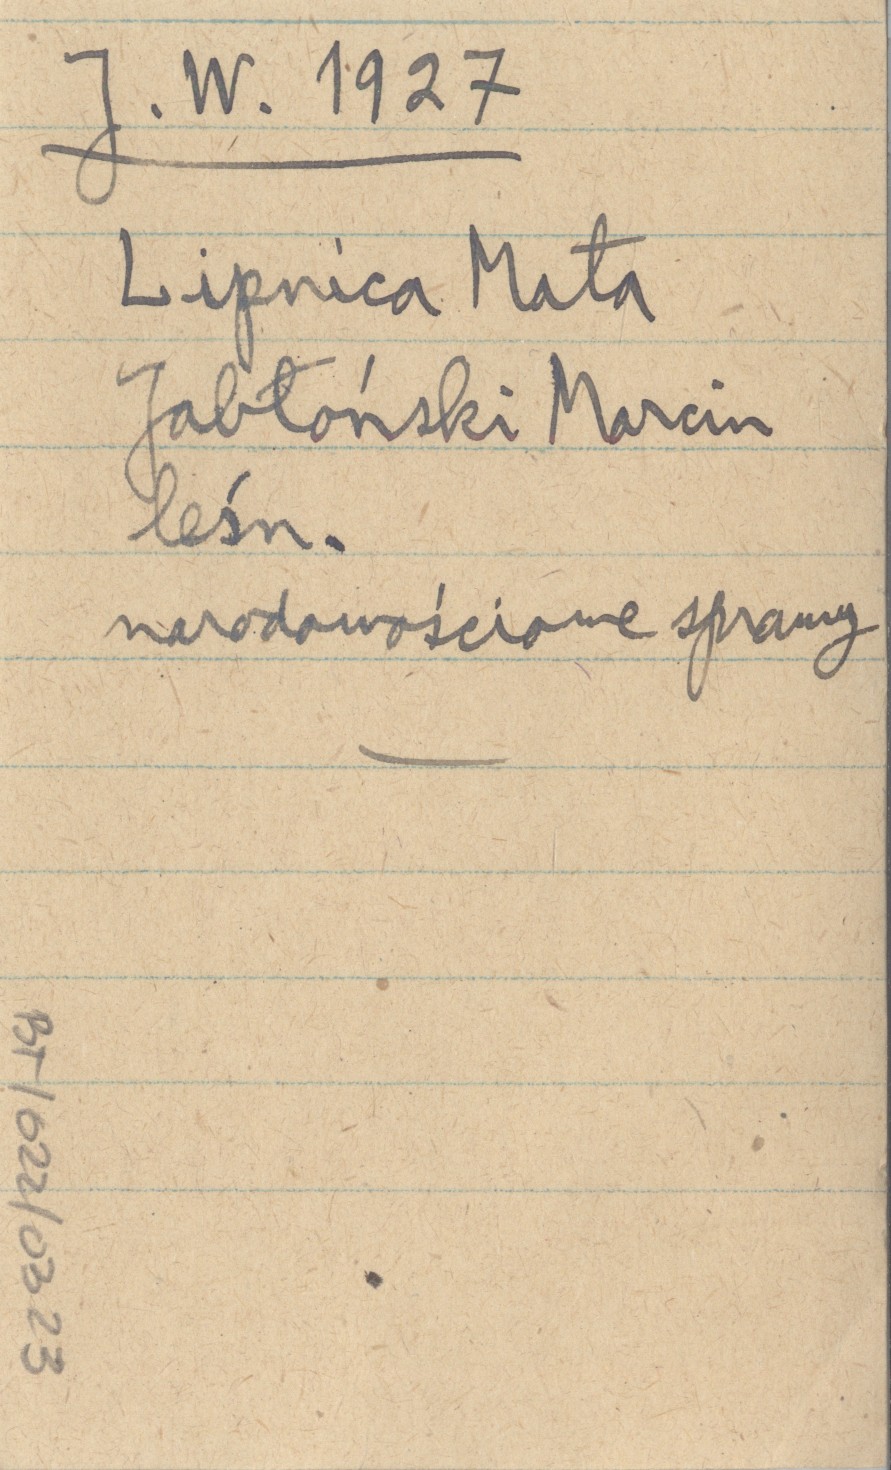 J. W. 1927
Lipnica Mała
Jabłoński Marcin
leśn.
narodowościowe sprawy
BT/022/0323